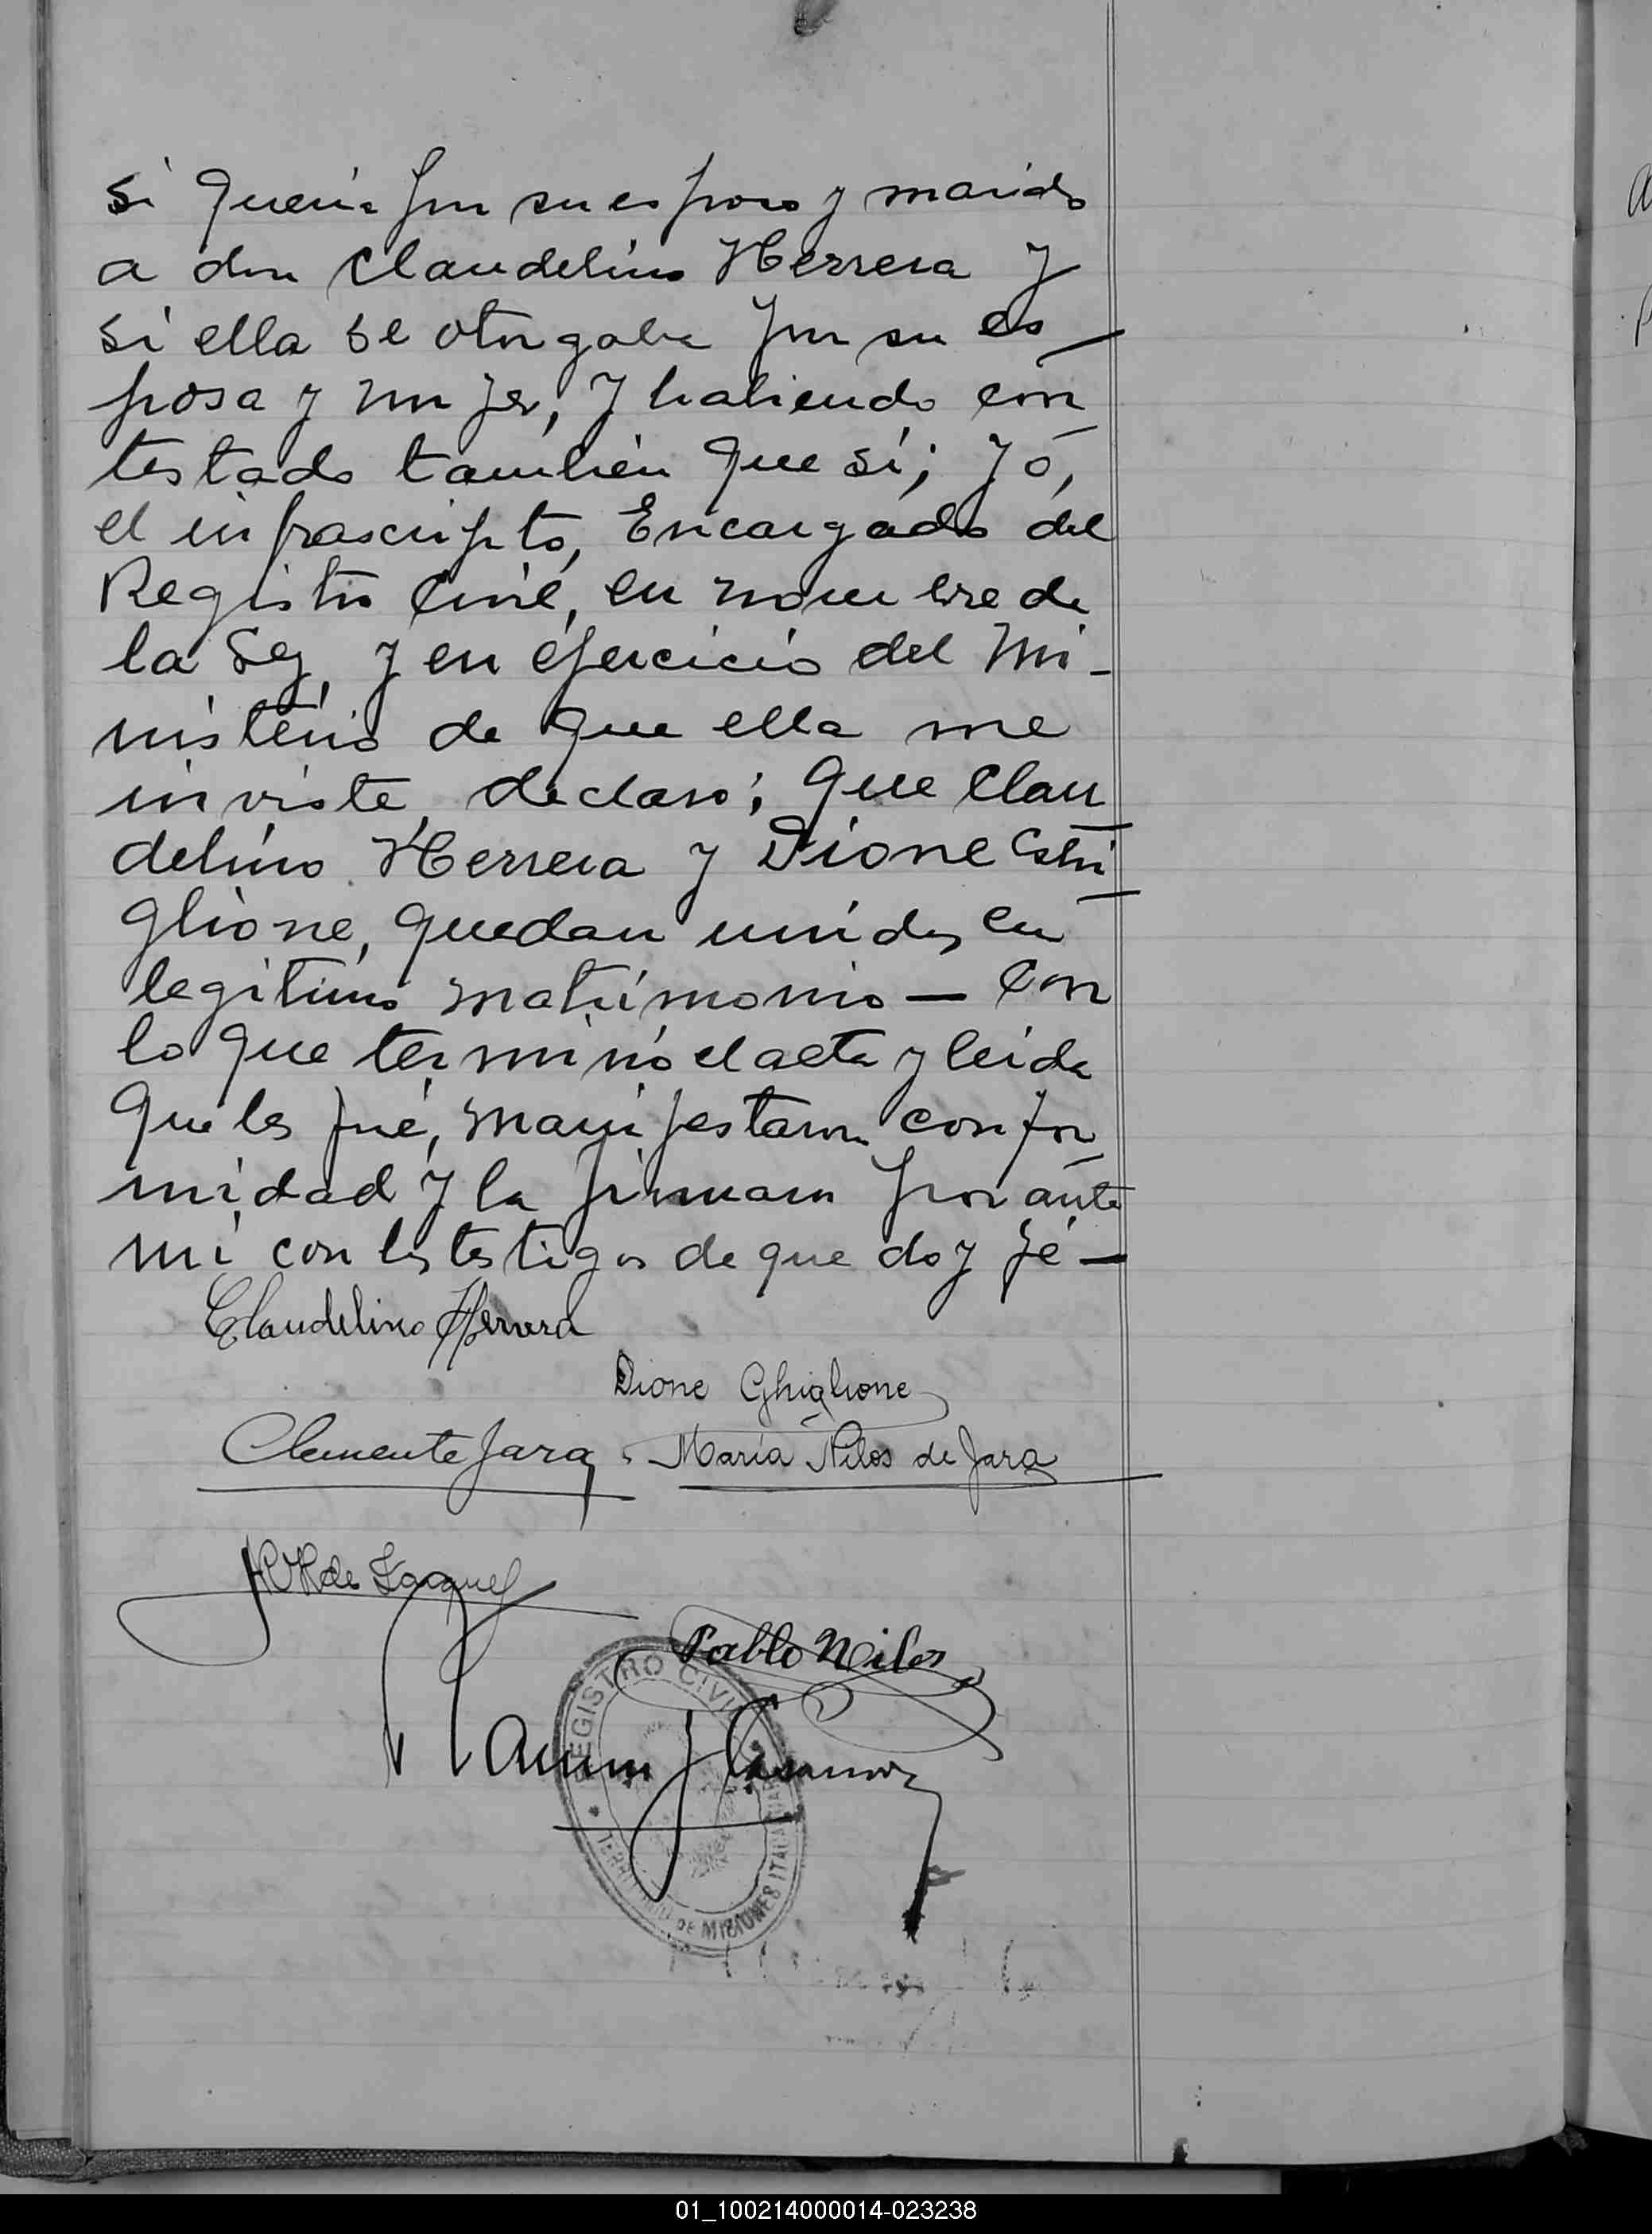 si quería por su esposo y marido
a don Claudelino Herrera y
si ella se otorgaba por su es
posa y mujer, y habiendo con
testado también que sí; Yó,
el infrascripto, Encargado del
Registro Civil, en nombre de
la Ley, y en ejercicio del Mi-
nistério de que ella me
inviste, declaro; Que Clau
delino Herrera y Dione Ghi
glione, quedan unidos en
legítimo matrimonio — Con
lo que terminó el acta y leída
que les fué, manifestaron confor
midad y la firmaron por ante
mí con los testigos de que doy fé —
Claudelino Herrera
Dione Ghiglione
Clemente Jara, María Nilos de Jara
Pablo Neilos
REGISTRO CIVIL
TERRITORIO DE MISIONES ITACARUARE
01_100214000014-023238